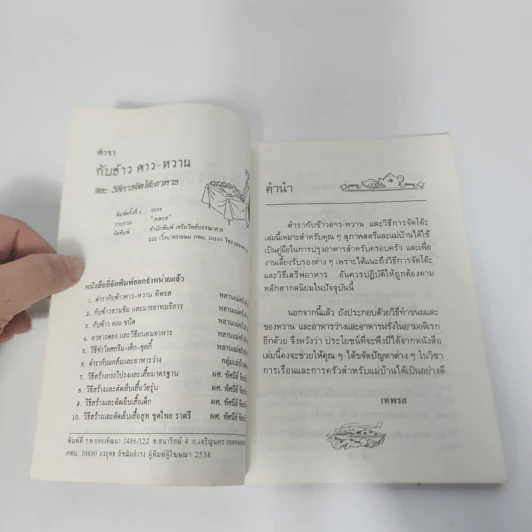 ตำรา
กับข้าว คาว-หวาน
และ วิธีการจัดโต๊ะอาหาร
พิมพ์ครั้งที่
รวบรวม "เทพรส"
จัดพิมพ์ สำนักพิมพ์ เสริมวิทย์บรรณาคาร
หนังสือที่จัดพิมพ์ออกจำหน่ายแล้ว
1. ตำรากับข้าวคาว-หวาน ทิพรส หลานแม่ครัว
2. กับข้าวชวนชิม และมารยาทบริการ หลานแม่ครัว
3. กับข้าว 600 ชนิด หลานแม่ครัว
4. อาหารดอง และวิธีถนอมอาหาร หลานแม่ครัว
5. วิธีทำไอศกรีม-เค้ก-คุกกี้ หลานแม่ครัว
6. ตำรากับแกล้มและอาหารว่าง กลุ่มแม่บ้าน
7. วิธีสร้างกระโปรงและเสื้อมาตรฐาน ผศ. ทัศนีย์
8. วิธีสร้างและตัดเย็บเสื้อวัยรุ่น ผศ. ทัศนีย์
9. วิธีสร้างและตัดเย็บเสื้อเด็ก ผศ. ทัศนีย์
10. วิธีสร้างและตัดเย็บเสื้อสูท ชุดไทย ราตรี ผศ. ทัศนีย์
พิมพ์ที่ 1486/122 ถ.เจริญนคร
กทม. 10600 ผู้พิมพ์ผู้โฆษณา 2538
คำนำ
ตำรากับข้าวคาว-หวาน และวิธีการจัดโต๊ะ
เล่มนี้เหมาะสำหรับคุณ ๆ สุภาพสตรีและแม่บ้านได้ใช้
เป็นคู่มือในการปรุงอาหารสำหรับครอบครัว และเพื่อ
งานเลี้ยงรับรองต่าง ๆ เพราะได้แนะถึงวิธีการจัดโต๊ะ
และวิธีเสริฟอาหาร อันควรปฏิบัติให้ถูกต้องตาม
หลักสากลนิยมในปัจจุบันนี้
นอกจากนี้แล้ว ยังประกอบด้วยวิธีทำขนมและ
ของหวาน และอาหารว่างและอาหารฝรั่งในยามอดิเรก
อีกด้วย จึงหวังว่า ประโยชน์ที่จะพึงมีได้จากหนังสือ
เล่มนี้คงจะช่วยให้คุณ ๆ ได้ขจัดปัญหาต่าง ๆ ในวิชา
การเรือนและการครัวสำหรับแม่บ้านได้เป็นอย่างดี
เทพรส